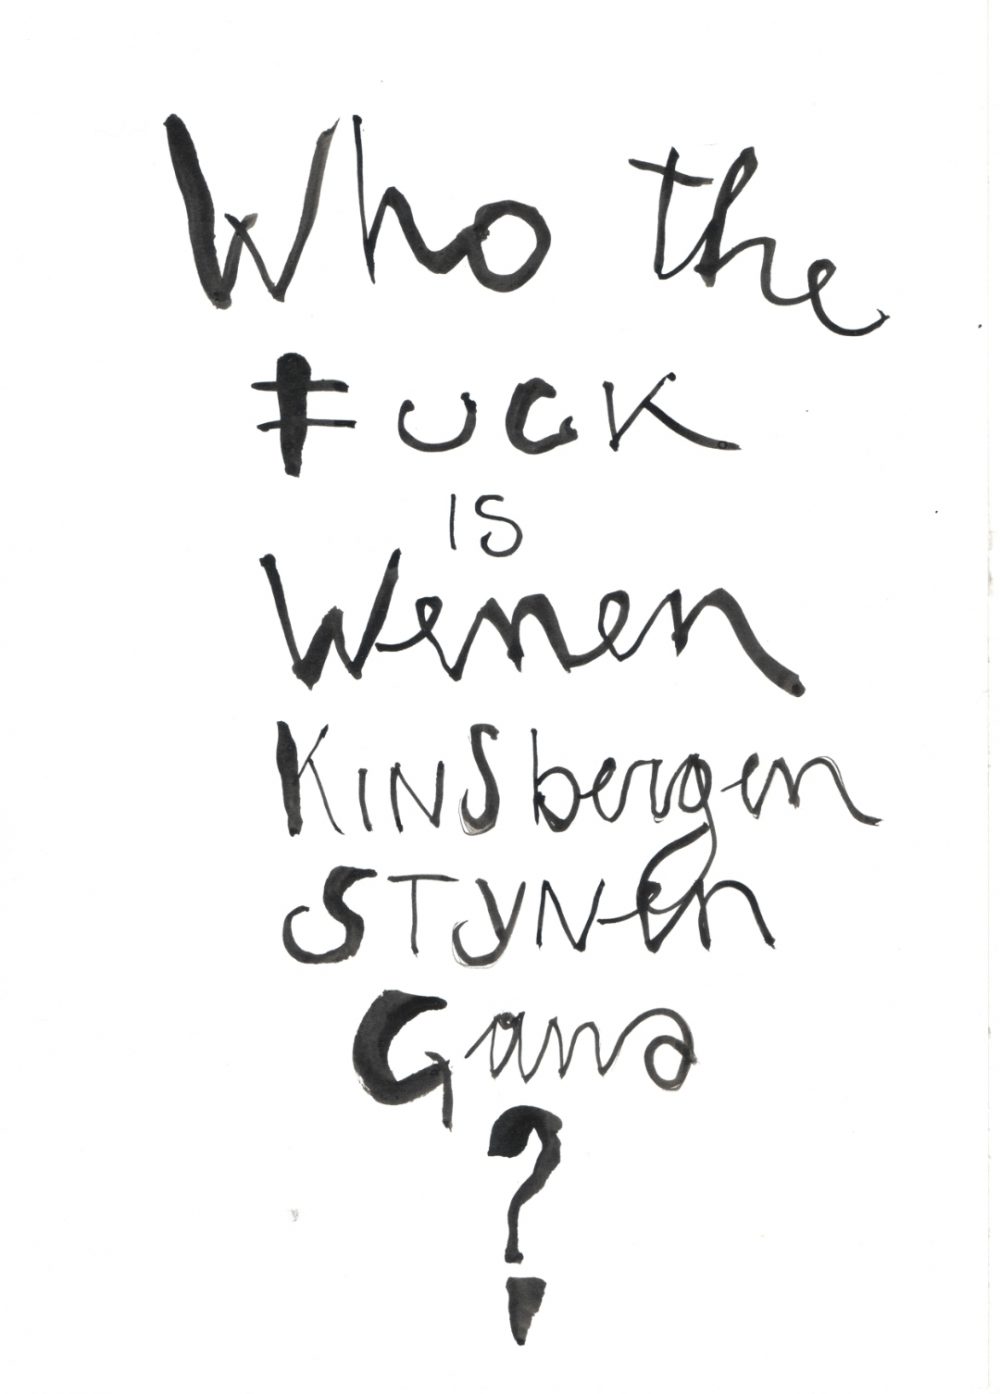 Who the
FUCK
IS
Wenen
KINSbergen
STYNen
Gand
?